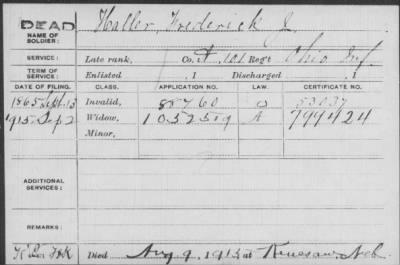 DEAD Haller, Frederick J.
NAME OF SOLDIER:
SERVICE: Late rank, Co. 101 Regt Ohio Inf.
TERM OF SERVICE: Enlisted , 1 Discharged , 1
DATE OF FILING. CLASS. APPLICATION NO. LAW. CERTIFICATE NO.
1865 Sept. 13 Invalid, 88760 53037
1915 Sep 2 Widow, 1052519 A 799424
Minor,
ADDITIONAL SERVICES:
REMARKS:
Died Aug 9, 1915 at Kenesaw, Neb.